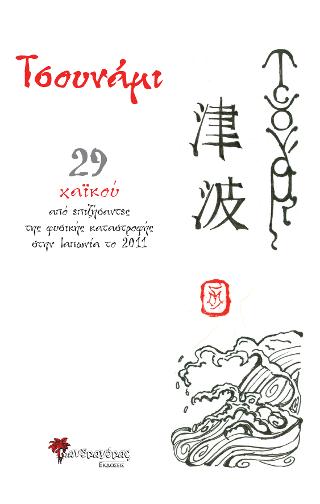 Τσουνάμι
29
χαϊκού
από επιζήσαντες
της φυσικής καταστροφής
στην Ιαπωνία το 2011
津波
Τσουνάμι
Μανδραγόρας
ΕΚΔΟΣΕΙΣ